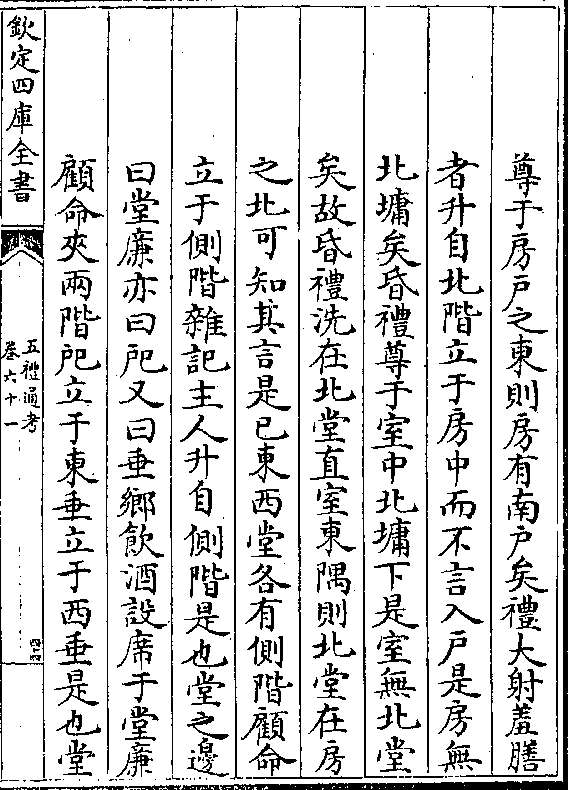 尊于房戶之東則房有南戶矣禮大射羞膳
者升自北階立于房中而不言入戶是房無
北墉矣昏禮尊于室中北墉下是室無北堂
矣故昏禮洗在北堂直室東隅則北堂在房
之北可知其言是已東西堂各有側階顧命
立于側階雜記主人升自側階是也堂之邊
曰堂廉亦曰戺又曰垂鄉飲酒設席于堂廉
顧命夾兩階戺立于東垂立于西垂是也堂
欽定四庫全書
五禮通考
卷六十一